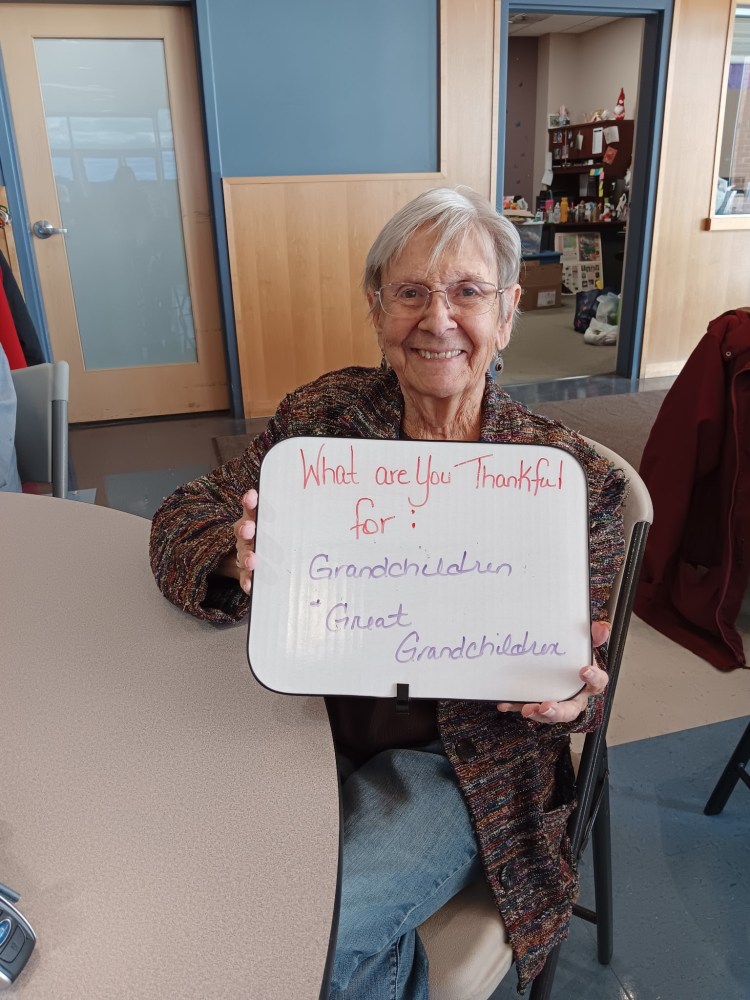 What are You Thankful
for :
Grandchildren
Great
Grandchildren